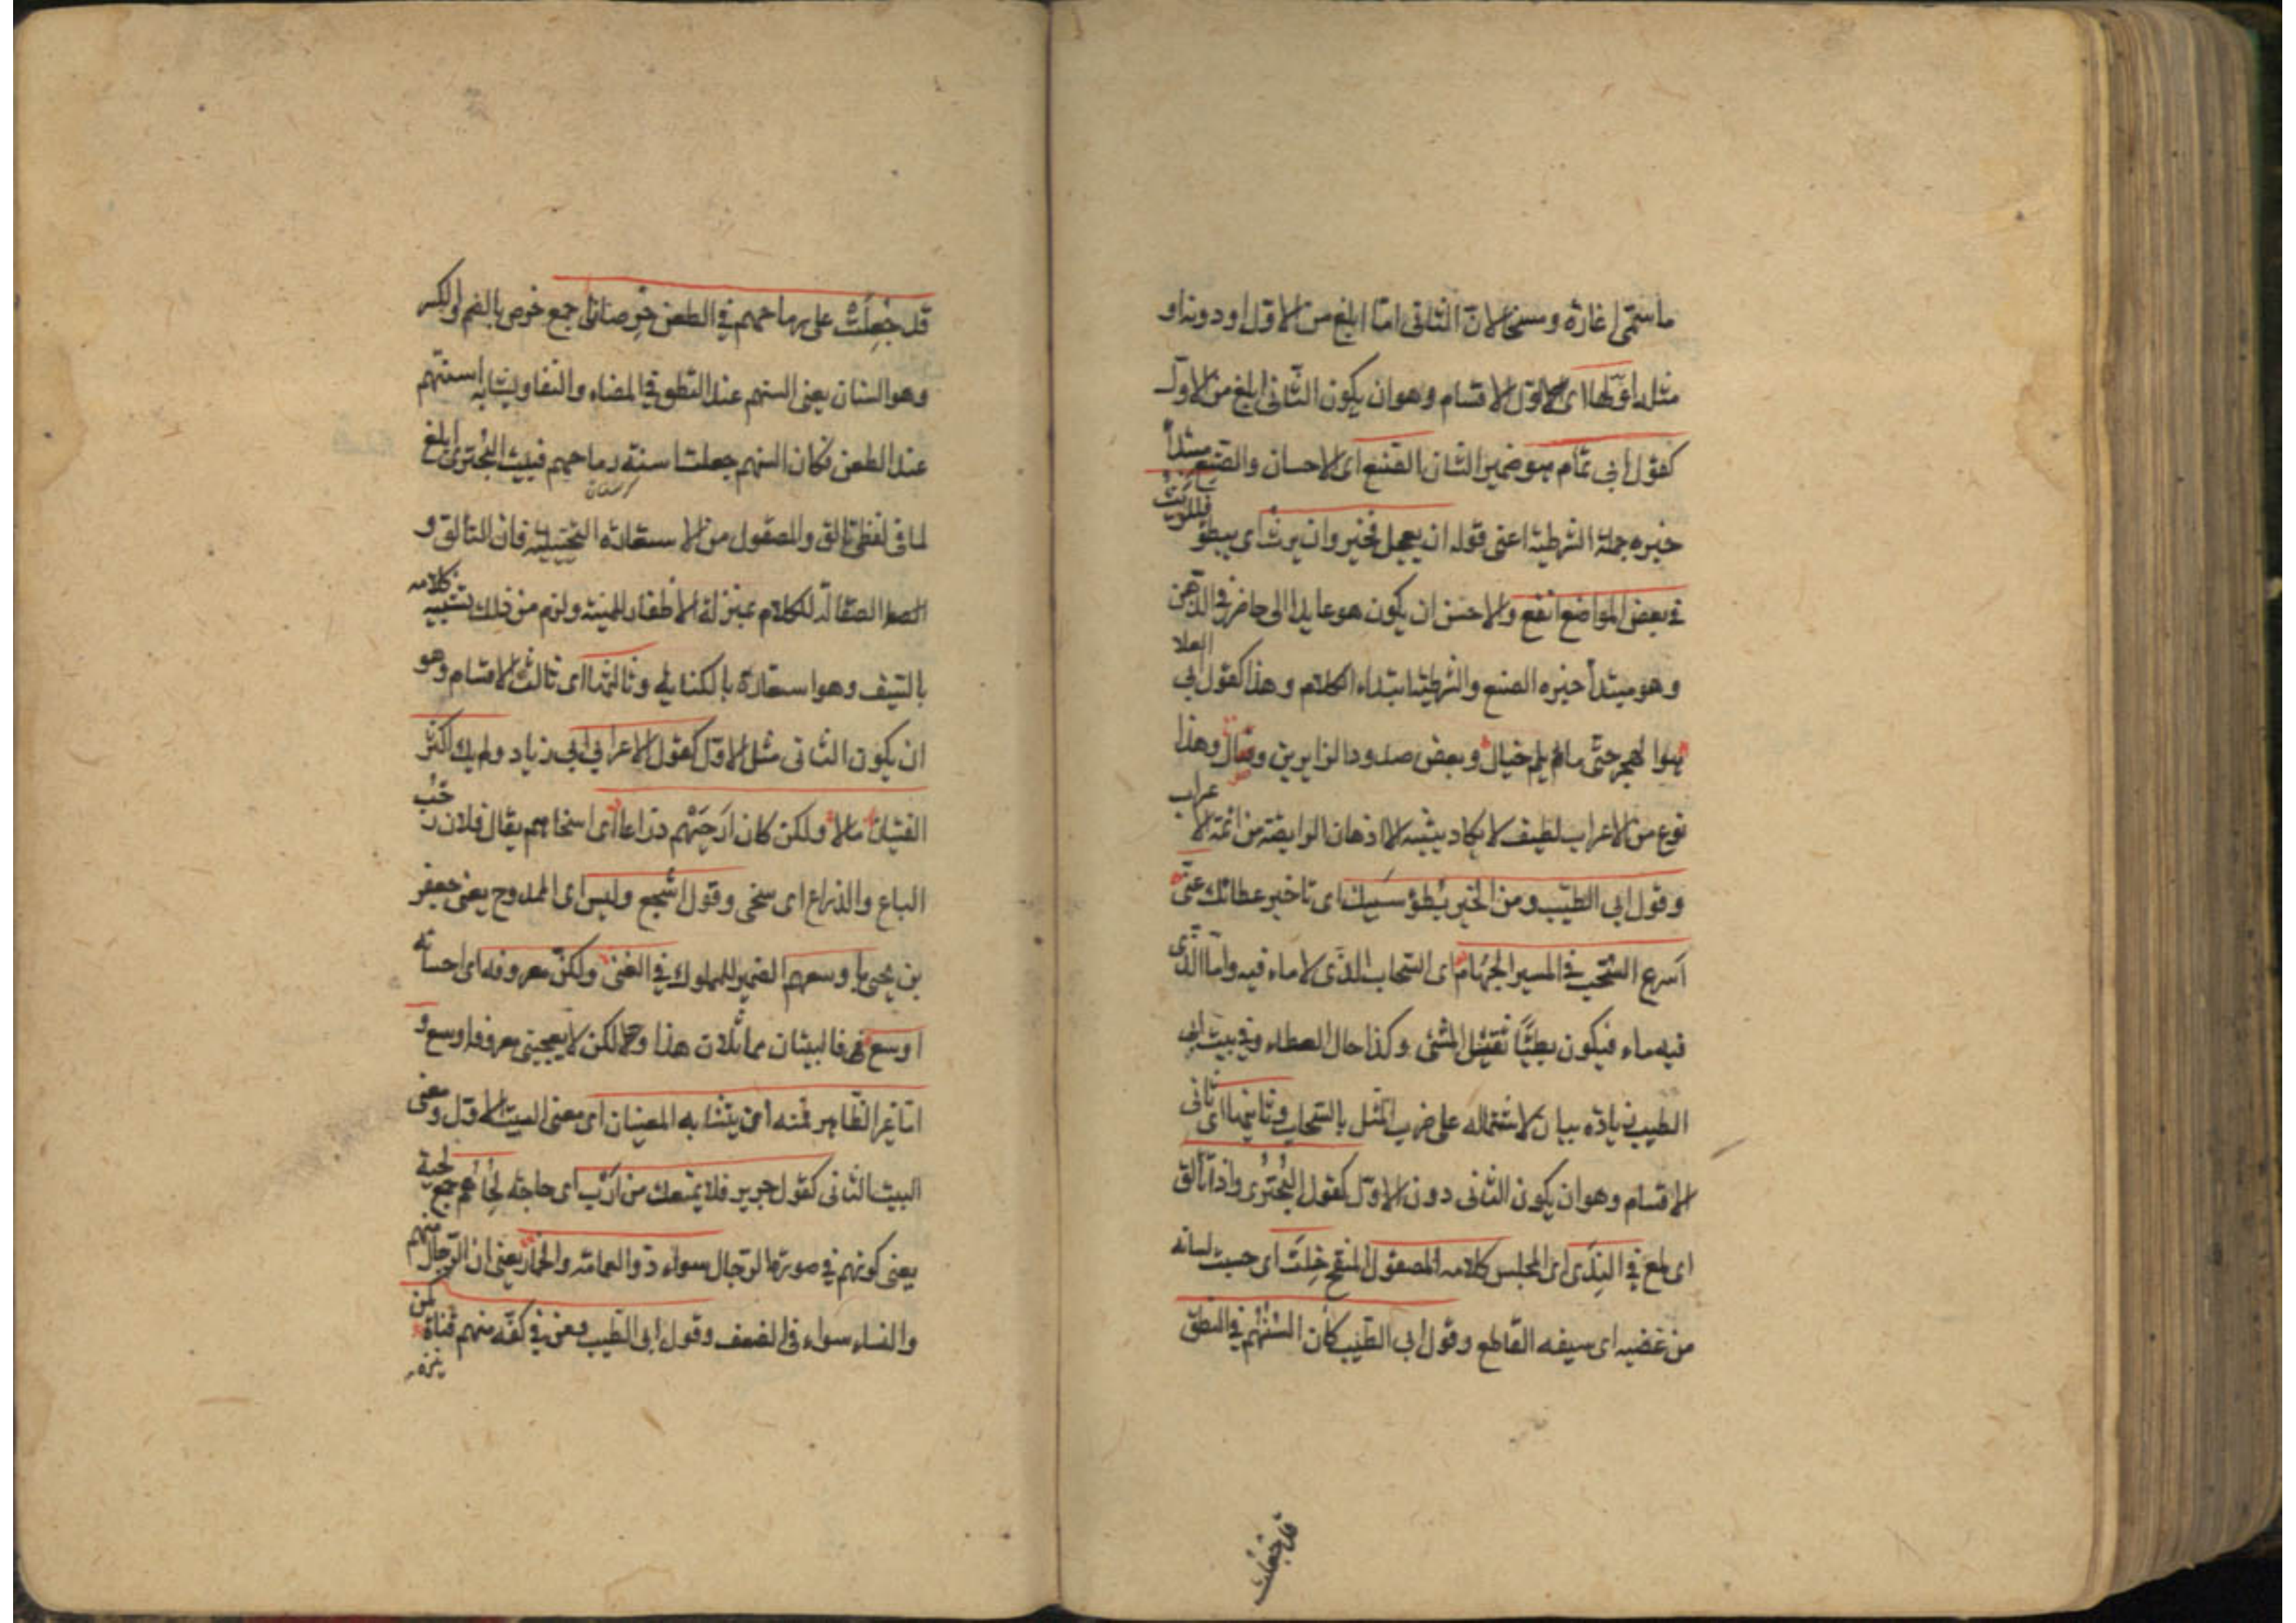 ما سمى اغارة ومسخا لان الثانى اما ابلغ من الاول او دونه او
مثله اولها اى اول الاقسام وهو ان يكون الثانى ابلغ من الاول
كقول ابى تمام هو ضمير الشان الصنع اى الاحسان والصنع مبتدأ
خبره جملة الشرطية اعنى قوله ان يعجل فخير وان يرث اى يبطؤ فللريث
فى بعض المواضع انفع والاحسن ان يكون هو عايدا الى حاضر فى الذهن
وهو مبتدأ خبره الصنع والشرطية ابتداء الكلام وهذا كقول ابى العلا
هو الهجر حتى ما يلم خيال وبعض صدود الزايرين وصال وهذا
نوع من الاعراب لطيف لا يكاد ينتبه الا اذهان الرايضة من ائمة الاعراب
وقول ابى الطيب ومن الخير بطؤ سيبك اى تاخير عطائك عنى
اسرع السحب فى المسير الجهام اى السحاب الذى لا ماء فيه واما الذى
فيه ماء فيكون بطيئا ثقيل المشى وكذا حال العطاء وفى بيت ابى
الطيب زيادة بيان لاشتماله على ضرب المثل بالسحاب وثانيها اى ثانى
الاقسام وهو ان يكون الثانى دون الاول كقول البحترى واذا تألق
اى لمع فى الندى اى المجلس كلامه المصقول المنقح خلت اى حسبت لسانه
من عضبه اى سيفه القاطع وقول ابى الطيب كان السنهم فى النطق
قد جعلت
قد جعلت على رماحهم فى الطعن خرصانا جمع خرص بالضم او الكسر
وهو السنان يعنى السنهم عند النطق فى المضاء والنفاذ يشابه اسنتهم
عند الطعن فكان السنهم جعلت اسنة رماحهم فبيت البحترى ابلغ
لما فى لفظى تالق والمصقول من الاستعارة التخييلية فان التالق و
الصقالة للكلام بمنزلة الاظفار للمنية ولزم من ذلك تشبيه كلامه
بالسيف وهو استعارة بالكناية وثالثها اى ثالث الاقسام وهو
ان يكون الثانى مثل الاول كقول الاعرابى ابى زياد ولم يك اكثر
الفتيان مالا ولكن كان ارحبهم ذراعا اى اسخاهم يقال فلان رحب
الباع والذراع اى سخى وقول اشجع وليس اى الممدوح يعنى جعفر
بن يحيى باوسعهم الضمير للملوك فى الغنى ولكن معروفه اى احسانه
اوسع فالبيتان متماثلان هذا ولكن لا يعجبنى معروفه اوسع و
اما غير الظاهر فمنه ان يتشابه المعنيان اى معنى البيت الاول ومعنى
البيت الثانى كقول جرير فلا يمنعك من ارب اى حاجة لحاهم جمع لحية
يعنى كونهم فى صورة الرجال سواء ذو العمامة والخمار يعنى ان الرجال منهم
والنساء سواء فى الضعف وقول ابى الطيب ومن فى كفه منهم قناة كمن